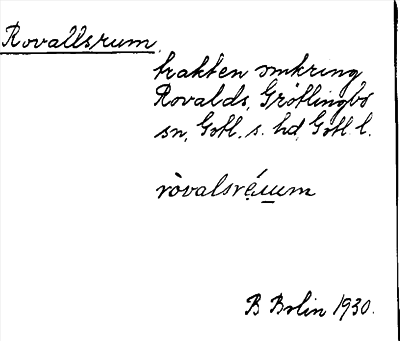 Rovallsrum
trakten omkring
Rovalds, Grötlingbo
sn, Gotl. s. hd, Gotl. l.
B Bolin 1930.